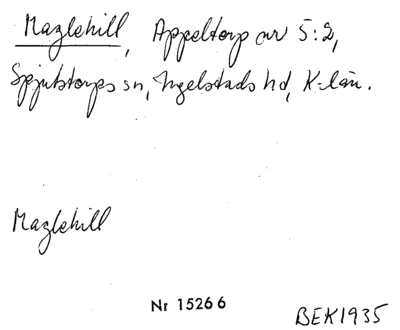 Maglehill, Appeltorp nr 5:2,
Spjutstorps sn, Ingelstads hd, K-län.
Maglehill
Nr 15266
BEK1935